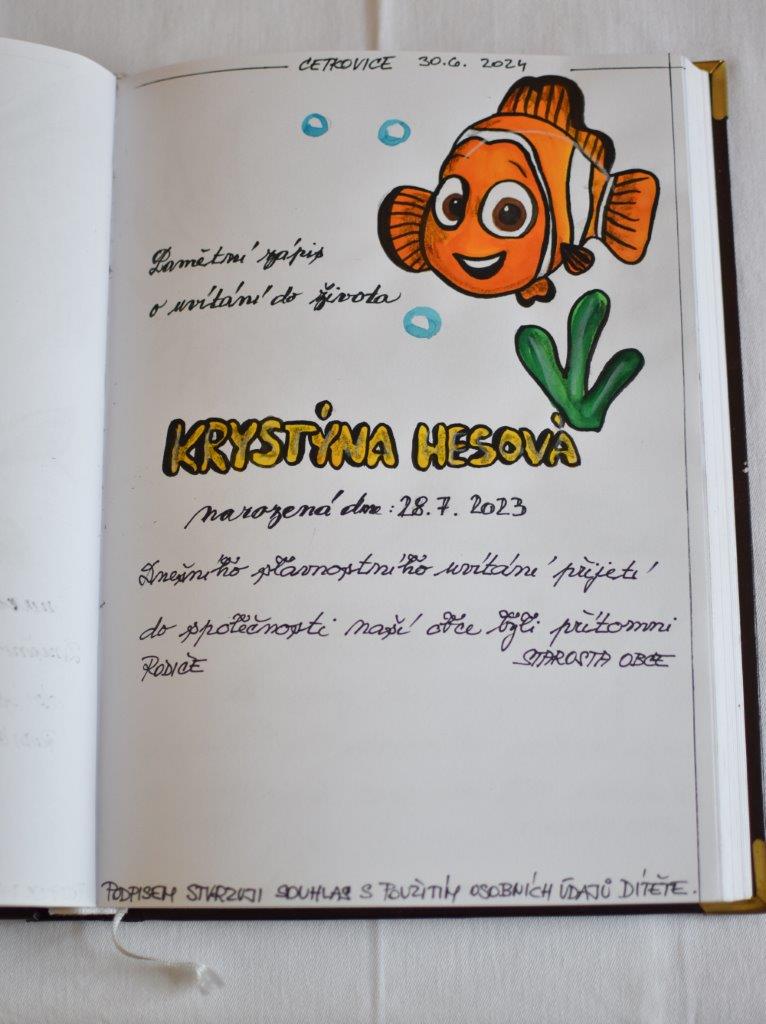 CETKOVICE 30.6. 2024
Pamětní zápis
o uvítání do života
KRYSTÝNA HESOVÁ
narozená dne: 28.7. 2023
Dnešního slavnostního uvítání přijetí
do společnosti naší obce byli přítomni
RODIČE STAROSTA OBCE
PODPISEM STVRZUJI SOUHLAS S POUŽITÍM OSOBNÍCH ÚDAJŮ DÍTĚTE.